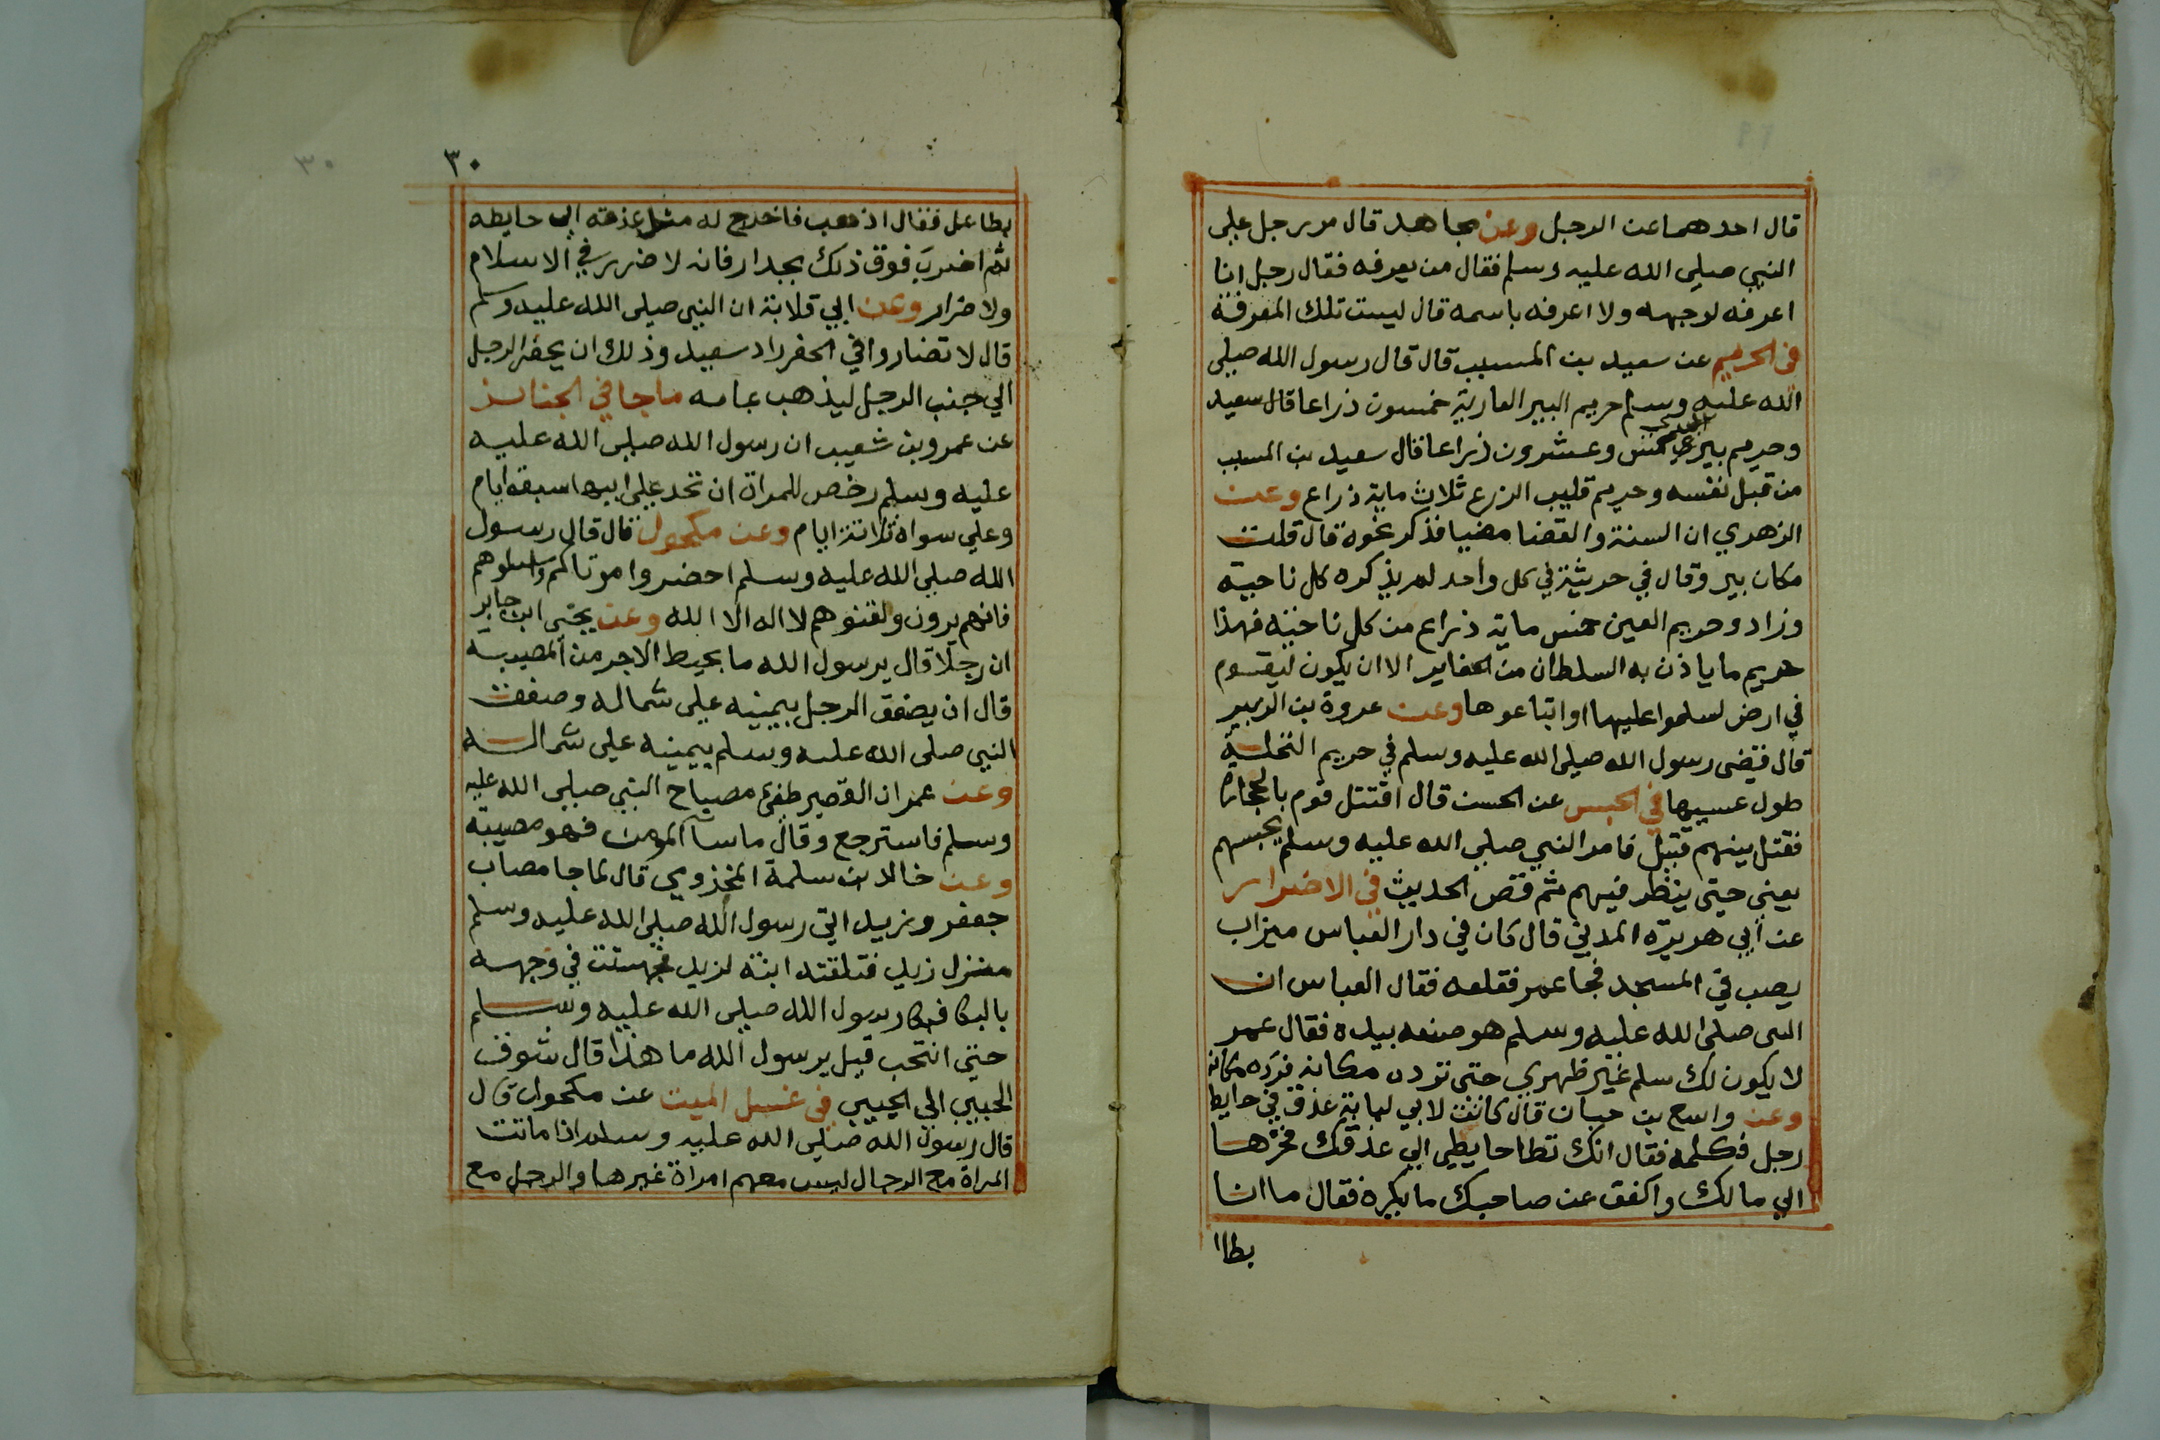 قال احدهما عن الرجل وعن مجاهد قال مر رجل على
النبي صلى الله عليه وسلم فقال من يعرفه فقال رجل انا
اعرفه لوجهه ولا اعرفه باسمه قال ليست تلك المعرفة
في الحريم عن سعيد بن المسيب قال قال رسول الله صلى
الله عليه وسلم حريم البير العارية خمسون ذراعا قال سعيد
وحريم بير خمس وعشرون ذراعا قال سعيد بن المسيب
من قبل نفسه وحريم قليب الزرع ثلاث ماية ذراع وعن
الزهري ان السنة والقضا مضيا فذكر نحوه قال قلت
مكان بير وقال في حديثه في كل واحد لم يذكره كل ناحية
وزاد وحريم العين خمس ماية ذراع من كل ناحية فهذا
حريم ما ياذن به السلطان من الحفاير الا ان يكون ليقوم
في ارض لسلموا عليها او ابتاعوها وعن عروة بن الزبير
قال قضى رسول الله صلى الله عليه وسلم في حريم النخلة
طول عسيبها في الحبس عن الحسن قال اقتتل قوم بالحجارة
فقتل بينهم قتيل فامر النبي صلى الله عليه وسلم بحبسهم
يعني حتى ينظر فيهم ثم قص الحديث في الاضرار
عن أبي هريرة المدني قال كان في دار العباس ميزاب
يصب في المسجد فجا عمر فقلعه فقال العباس ان
النبي صلى الله عليه وسلم هو صنعه بيده فقال عمر
لا يكون لك سلم غير ظهري حتى ترده مكانه فرده مكانه
وعن واسع بن حبان قال كانت لابي لبابة عذق في حايط
رجل فكلمه فقال انك تطا حايطي الى عذقك فخرها
الي مالك واكفف عن صاحبك ما يكره فقال ما انا
بطاا
٣٠
بطا عل فقال اذهب فاخرج له مثل عذقه الى حايطه
ثم اضرب فوق ذلك بجدار فانه لا ضرر في الاسلام
ولا ضرار وعن ابي قلابة ان النبي صلى الله عليه وسلم
قال لا تضاروا في الحفر زاد سعيد وذلك ان يحفر الرجل
الي جنب الرجل ليذهب بمامه ما جا في الجنايز
عن عمرو بن شعيب ان رسول الله صلى الله عليه
عليه وسلم رخص للمراة ان تحد على ابيها سبعة ايام
وعلى سواه ثلاثة ايام وعن مكحول قال قال رسول
الله صلى الله عليه وسلم احضروا موتاكم
فانهم يرون ولقنوهم لا اله الا الله وعن يحيى ابن جابر
ان رجلا قال يرسول الله ما يحيط الاجر من المصيبة
قال ان يصفق الرجل بيمينه على شماله وصفق
النبي صلى الله عليه وسلم بيمينه على شماله
وعن عمران القصير طفئ مصباح النبي صلى الله عليه
وسلم فاسترجع وقال ما سا المومن فهو مصيبة
وعن خالد بن سلمة المخذومي قال لما جا مصاب
جعفر وزيد اتى رسول الله صلى الله عليه وسلم
منزل زيد فتلقته ابنة لزيد فجهشت في وجهه
بالبكا فبكا رسول الله صلى الله عليه وسلم
حتى انتحب قيل يرسول الله ما هذا قال شوق
الحبيب الى الحبيب في غسل الميت عن مكحول قال
قال رسول الله صلى الله عليه وسلم اذا ماتت
المراة مع الرجال ليس معهم امراة غيرها والرجل مع